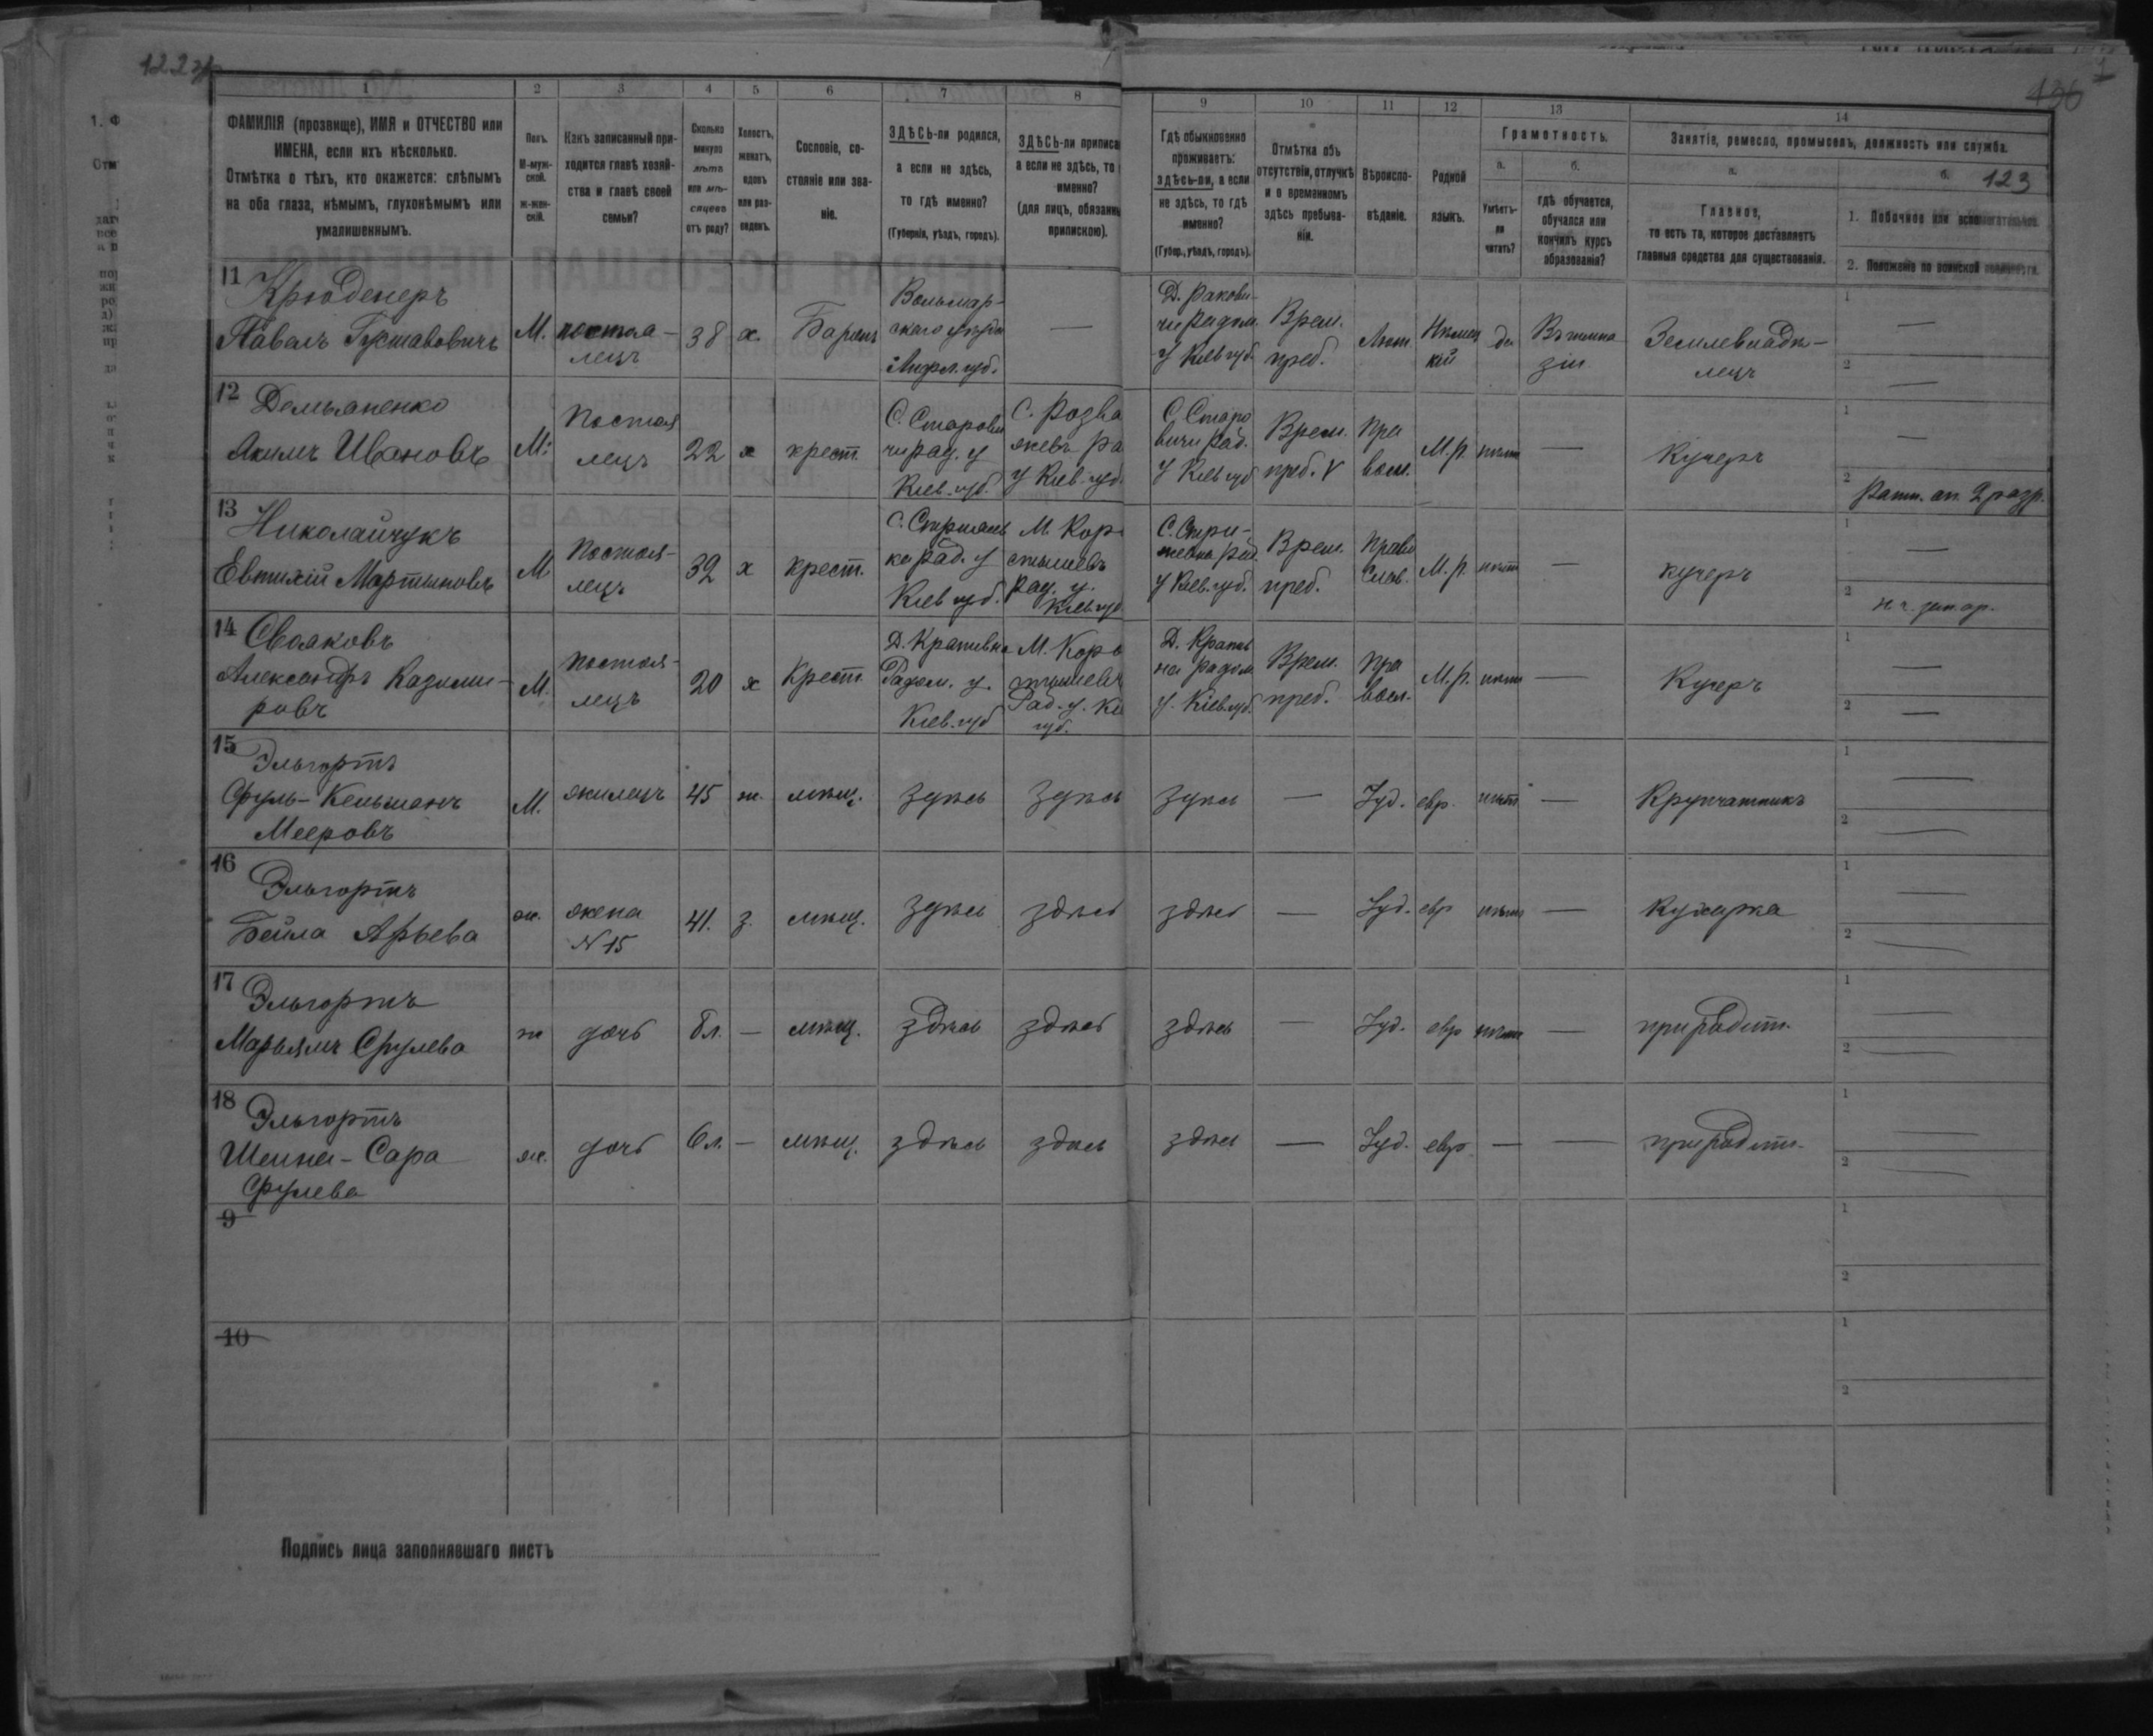 122 об
136
1. Ф
Отм
1 2 3 4 5 6 7 8 9 10 11 12 13 14
ФАМИЛІЯ (прозвище), ИМЯ и ОТЧЕСТВО или
ИМЕНА, если ихъ нѣсколько.
Отмѣтка о тѣхъ, кто окажется: слѣпымъ
на оба глаза, нѣмымъ, глухонѣмымъ или
умалишеннымъ.
Полъ.
М-муж-
ской.
ж-жен-
скій.
Какъ записанный при-
ходится главѣ хозяй-
ства и главѣ своей
семьи?
Сколько
минуло
лѣтъ
или мѣ-
сяцевъ
отъ роду?
Холостъ,
женатъ,
вдовъ
или раз-
веденъ.
Сословіе, со-
стояніе или зва-
ніе.
ЗДѢСЬ-ли родился,
а если не здѣсь,
то гдѣ именно?
(Губернія, уѣздъ, городъ).
ЗДѢСЬ-ли приписа
а если не здѣсь, то
именно?
(для лицъ, обязанны
припискою).
Гдѣ обыкновенно
проживаетъ:
здѣсь-ли, а если
не здѣсь, то гдѣ
именно?
(Губер., уѣздъ, городъ).
Отмѣтка объ
отсутствіи, отлучкѣ
и о временномъ
здѣсь пребыва-
ніи.
Вѣроиспо-
вѣданіе.
Родной
языкъ.
Грамотность.
а.
Умѣетъ-
ли
читать?
б.
гдѣ обучается,
обучался или
кончилъ курсъ
образованія?
Занятіе, ремесло, промыселъ, должность или служба.
а.
Главное,
то есть то, которое доставляетъ
главныя средства для существованія.
б. 123
1. Побочное или вспомогательное.
2. Положеніе по воинской повинности.
11 Крюденеръ
Павалъ Густавовичъ
М.
постоя-
лецъ
38
х.
Баронъ
Вольмар-
скаго уѣзда
Лифл. губ.
—
Д. Ракови-
чи Радом.
у Кіев губ.
Врем.
преб.
Лют.
Нѣмец
кій
да
Въ гимна
зіи
Землевладѣ-
лецъ
1 —
2 —
12 Демьяненко
Акимъ Ивановъ
М.
Постоя
лецъ
22
х
крест.
С. Старови
чи рад. у
Кіев. губ.
С. Розва
жевъ Ра
у Кіев. губ.
С. Старо
вичи Рад.
у Кіев губ
Врем.
преб. V
Пра
восл.
М.р.
нѣт
—
Кучеръ
1 —
2 Ратн. оп. 2 разр.
13 Николайчукъ
Евтихій Мартыновъ
М
Постоя-
лецъ
32
х
крест.
С. Стрижев
ка Рад. у
Кіев губ.
М. Коро
стышевъ
Рад. у.
Кіев губ.
С. Стри-
жевка Рад.
у Кіев. губ.
Врем.
преб.
Право
слав.
М.р.
нѣт
—
кучеръ
1 —
2
14 Свояковъ
Александръ Казими-
ровъ
М.
постоя-
лецъ
20
х
Крест.
Д. Крапивна
Радом. у.
Кіев. губ
М. Коро
стышевъ
Рад. у. Кі
губ.
Д. Крапив
на Радом
у. Кіев. губ.
Врем.
преб.
Пра
восл.
М.р.
нѣт
—
Кучеръ
1 —
2 —
15 Эльгортъ
Сруль-Кельманъ
Мееровъ
М.
жилецъ
45
ж.
мѣщ.
здѣсь
здѣсь
здѣсь
—
Іуд.
евр.
нѣт
—
Крупчатникъ
1 —
2 —
16 Эльгортъ
Бейла Арьева
ж.
жена
N 15
41.
з.
мѣщ.
здѣсь
здѣсь
здѣсь
—
Іуд.
евр
нѣт
—
Кухарка
1 —
2 —
17 Эльгортъ
Марьямъ Срулева
ж
дочь
8 л.
—
мѣщ.
здѣсь
здѣсь
здѣсь
—
Іуд.
евр
нѣт
—
при родит.
1 —
2 —
18 Эльгортъ
Шейна-Сара
Срулева
ж.
дочь
6 л.
—
мѣщ.
здѣсь
здѣсь
здѣсь
—
Іуд.
евр
—
—
при родит.
1 —
2 —
9
1
2
10
1
2
Подпись лица заполнявшаго листъ